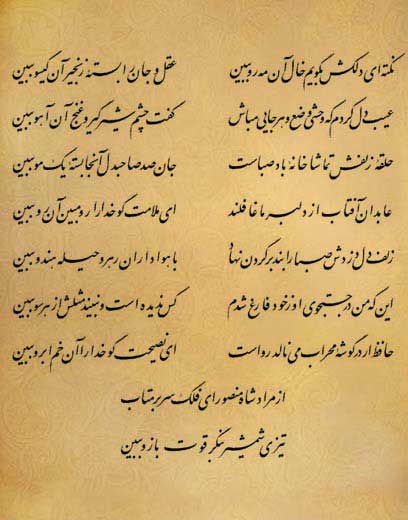 نکته‌ای دلکش بگویم خال آن مه رو ببین عقل و جان را بستهٔ زنجیر آن گیسو ببین
عیب دل کردم که وحشی وضع و هر جایی مباش گفت چشم شیرگیر و غنج آن آهو ببین
حلقه زلفش تماشاخانه باد صباست جان صد صاحبدل آنجا بسته یک مو ببین
عابدان آفتاب از دلبر ما غافلند ای ملامت گو خدا را رو مبین آن رو ببین
زلف دل دزدش صبا را بند بر گردن نهاد با هواداران رهرو حیله هندو ببین
این که من در جستجوی او ز خود فارغ شدم کس ندیده است و نبیند مثلش از هر سو ببین
حافظ ار در گوشه محراب می نالد رواست ای نصیحت گو خدا را آن خم ابرو ببین
از مراد شاه منصور ای فلک سر بر متاب
تیزی شمشیر بنگر قوت بازو ببین